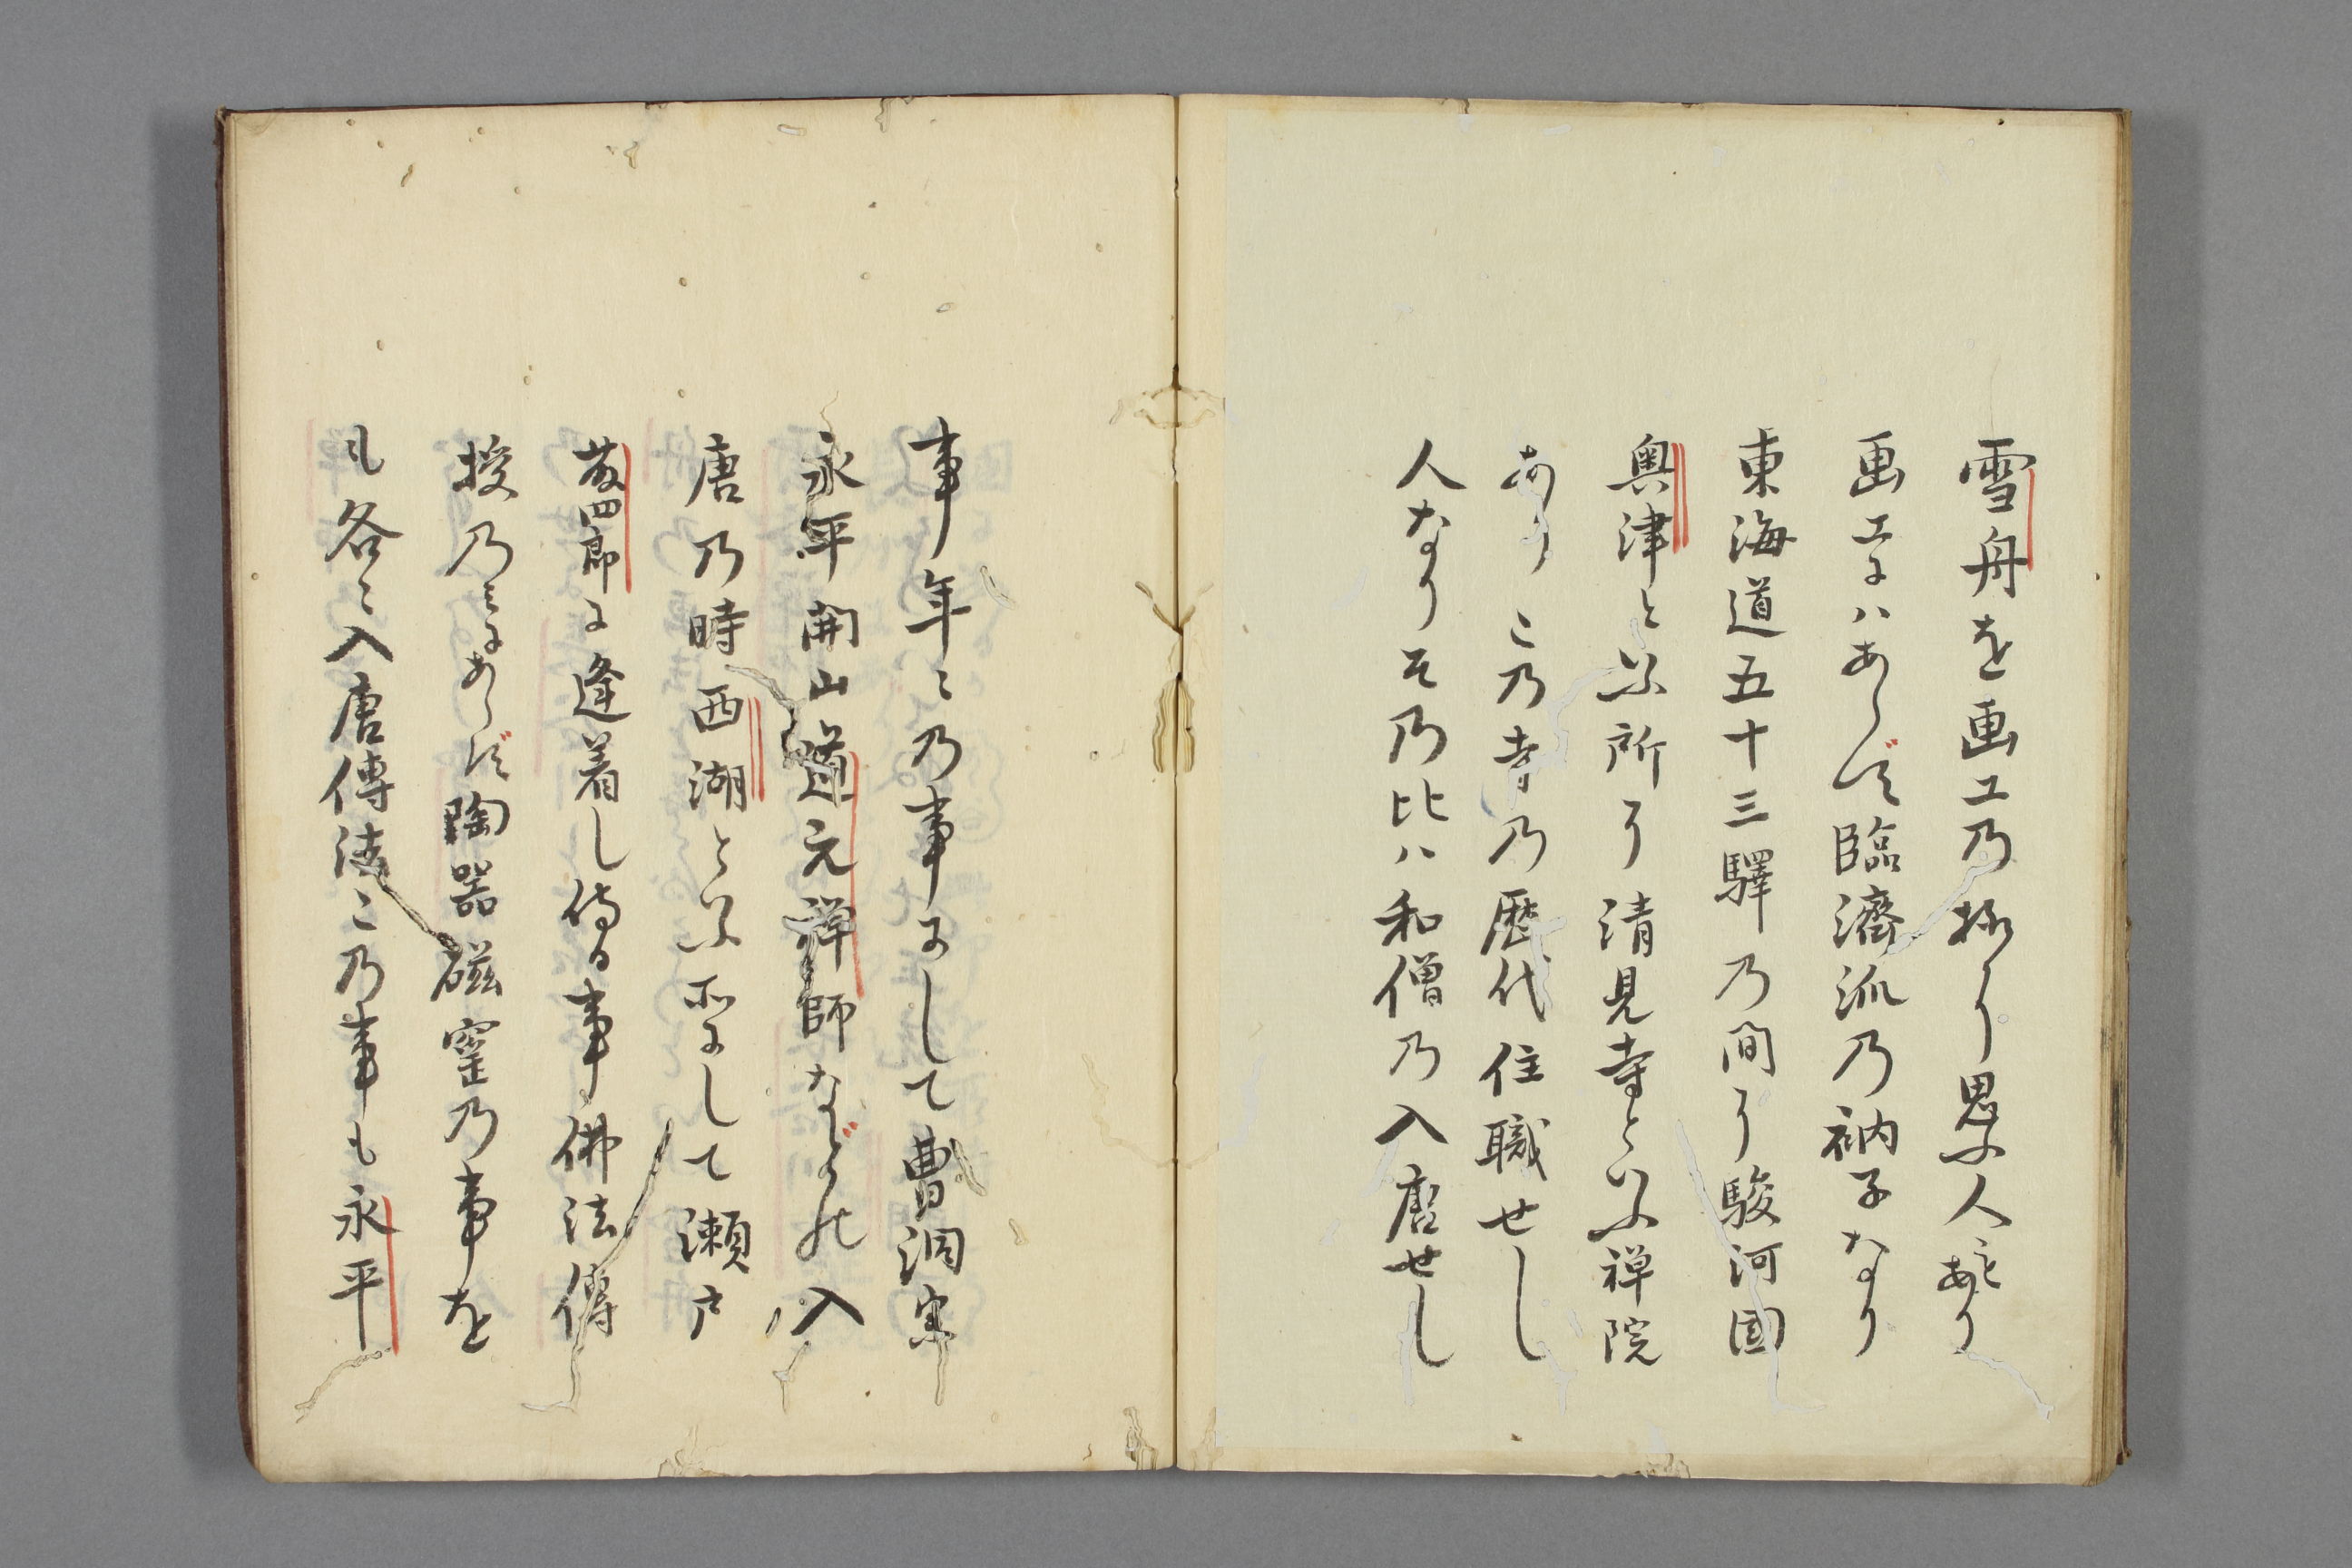 雪舟を画工乃様に思ふ人もあり
画工にハあらず臨濟派乃衲子なり
東海道五十三驛乃間に駿河国
奥津といふ所に清見寺といふ禅院
あり こ乃寺乃歴代住職せし
人なりそ乃比ハ和僧乃入唐せし
事年々乃事にして曹洞宗
永平開山道元禅師などの入
唐乃時西湖といふ所にして瀬戸
藤四郎に逢着し侍る事佛法傳
授乃みにあらず陶器磁窯乃事を
も各々入唐傳法こ乃事も永平